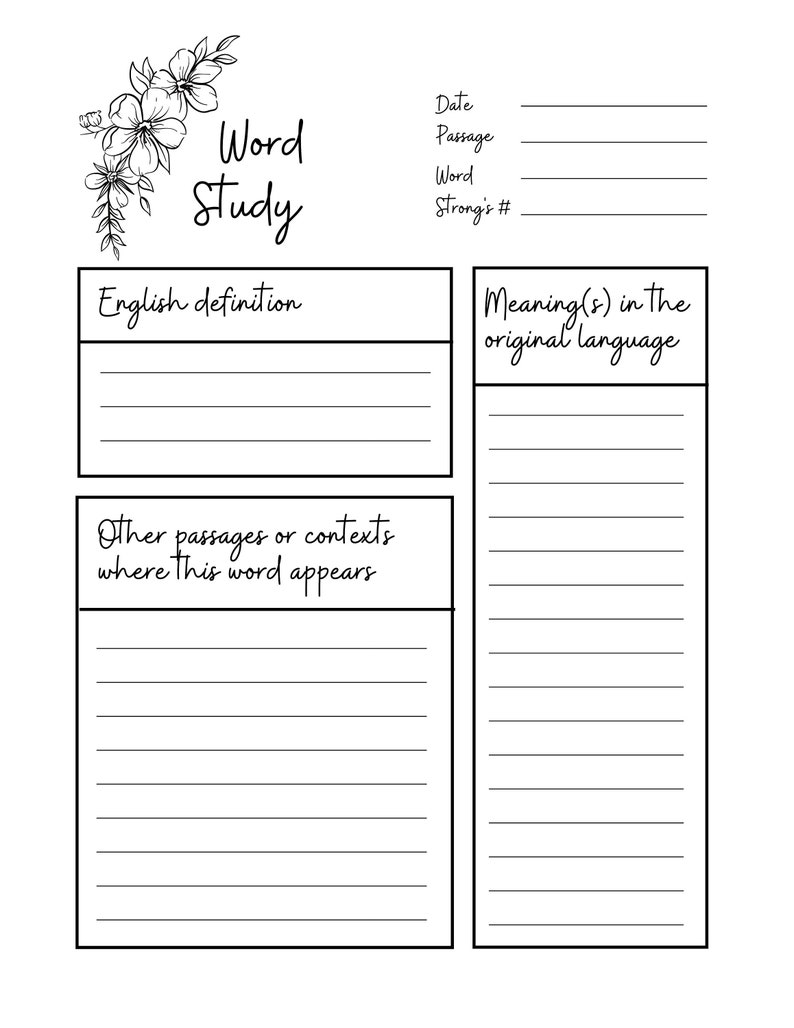 Word
Study
Date
Passage
Word
Strong's #
English definition
Meaning(s) in the
original language
Other passages or contexts
where this word appears